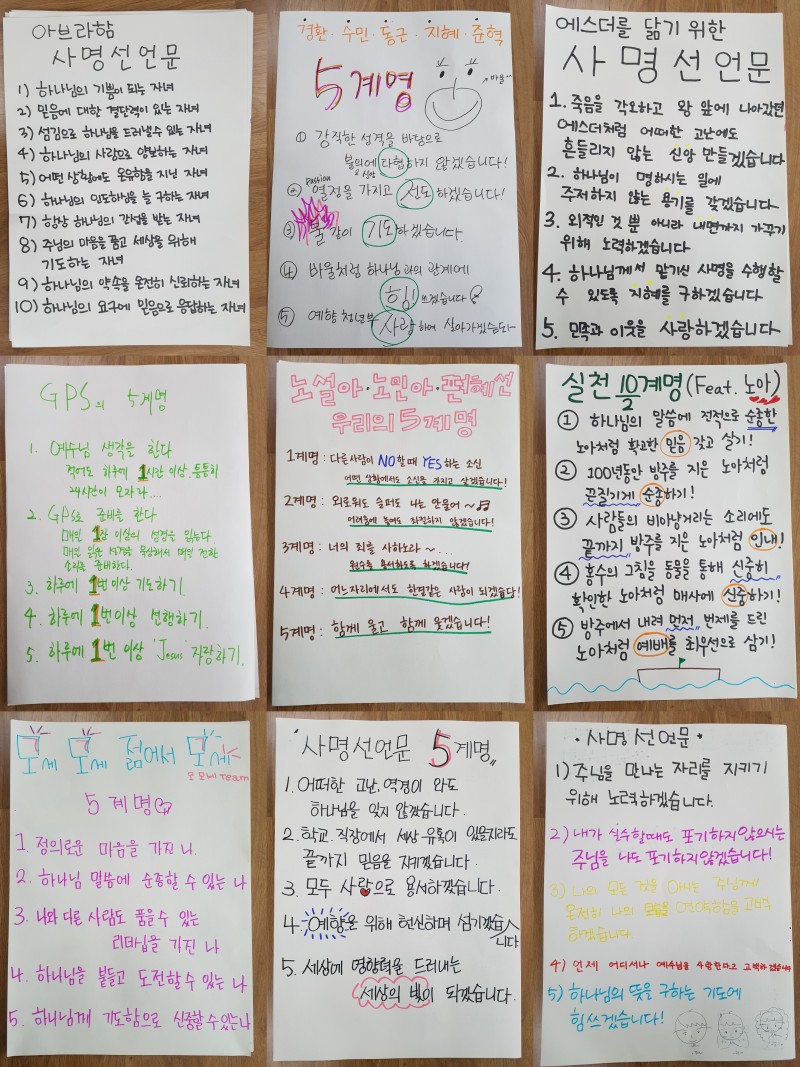 아브라함
사명선언문
1) 하나님의 기쁨이 되는 자녀
2) 믿음에 대한 결단력이 있는 자녀
3) 섬김으로 하나님을 드러낼수 있는 자녀
4) 하나님의 사랑으로 양보하는 자녀
5) 어떤 상황에도 온유함을 지닌 자녀
6) 하나님의 인도하심을 늘 구하는 자녀
7) 항상 하나님의 간섭을 받는 자녀
8) 주님의 마음을 품고 세상을 위해
기도하는 자녀
9) 하나님의 약속을 온전히 신뢰하는 자녀
10) 하나님의 요구에 믿음으로 응답하는 자녀
경환·수민·동근·지혜·준혁
5계명
바울
① 강직한 성격을 바탕으로
불의에 타협하지 않겠습니다!
& 신앙
passion
② 열정을 가지고 선도하겠습니다!
③ 불같이 기도하겠습니다.
④ 바울처럼 하나님과의 관계에
힘쓰겠습니다
⑤ 예향 청년부 사랑하며 살아가겠습니다
에스더를 닮기 위한
사명선언문
1. 죽음을 각오하고 왕 앞에 나아갔던
에스더처럼 어떠한 고난에도
흔들리지 않는 신앙 만들겠습니다
2. 하나님이 명하시는 일에
주저하지 않는 용기를 갖겠습니다.
3. 외적인 것 뿐 아니라 내면까지 가꾸기
위해 노력하겠습니다
4. 하나님께서 맡기신 사명을 수행할
수 있도록 지혜를 구하겠습니다
5. 민족과 이웃을 사랑하겠습니다
GPS의 5계명
1. 예수님 생각을 한다
적어도 하루에 1시간 이상. 틈틈히
24시간이 모자라....
2. GPS로 준비를 한다
매일 1장 이상의 성경을 읽는다.
매일 읽은 성경을 묵상해서 매일 전화
소리를 준비하다.
3. 하루에 1번 이상 기도하기.
4. 하루에 1번 이상 선행하기.
5. 하루에 1번 이상 'Jesus' 자랑하기.
노설아·노민아·편혜선
우리의 5계명
1계명: 다른사람이 NO할때 YES하는 소신
어떤 상황에서도 소신을 가지고 살겠습니다!
2계명: 외로워도 슬퍼도 나는 안울어~♬
어려움에 놓여도 좌절하지 않겠습니다!
3계명: 너의 죄를 사하노라~....
원수를 용서하도록 하겠습니다!
4계명: 어느자리에서도 한결같은 사람이 되겠습니다!
5계명: 함께 울고 함께 웃겠습니다!
실천 10계명(Feat. 노아)
① 하나님의 말씀에 전적으로 순종한
노아처럼 확고한 믿음 갖고 살기!
② 100년동안 방주를 지은 노아처럼
끈질기게 순종하기!
③ 사람들의 비아냥거리는 소리에도
끝까지 방주를 지은 노아처럼 인내!
④ 홍수의 그침을 동물을 통해 신중히
확인한 노아처럼 매사에 신중하기!
⑤ 방주에서 내려 먼저 번제를 드린
노아처럼 예배를 최우선으로 삼기!
모세 모세 젊어서 모세
오 모세 Team
5계명
1. 정의로운 마음을 가진 나.
2. 하나님 말씀에 순종할 수 있는 나
3. 나와 다른 사람도 품을 수 있는
리더십을 가진 나
4. 하나님을 붙들고 도전할 수 있는 나
5. 하나님께 기도함으로 신중할 수 있는 나
사명선언문 5계명
1. 어떠한 고난, 역경이 와도
하나님을 잊지 않겠습니다.
2. 학교·직장에서 세상 유혹이 있을지라도
끝까지 믿음을 지키겠습니다.
3. 모두 사랑으로 용서하겠습니다.
4. 예향을 위해 헌신하며 섬기겠습니다
5. 세상에 영향력을 드러내는
세상의 빛이 되겠습니다.
·사명선언문·
1) 주님을 만나는 자리를 지키기
위해 노력하겠습니다.
2) 내가 실수할때도 포기하지않으시는
주님을 나도 포기하지않겠습니다!
3) 나의 모든 것을 아시는 주님께
온전히 나의 연약함을 고백
하겠습니다
4) 언제 어디서나 예수님을 사랑한다고 고백하겠습니다
5) 하나님의 뜻을 구하는 기도에
힘쓰겠습니다!